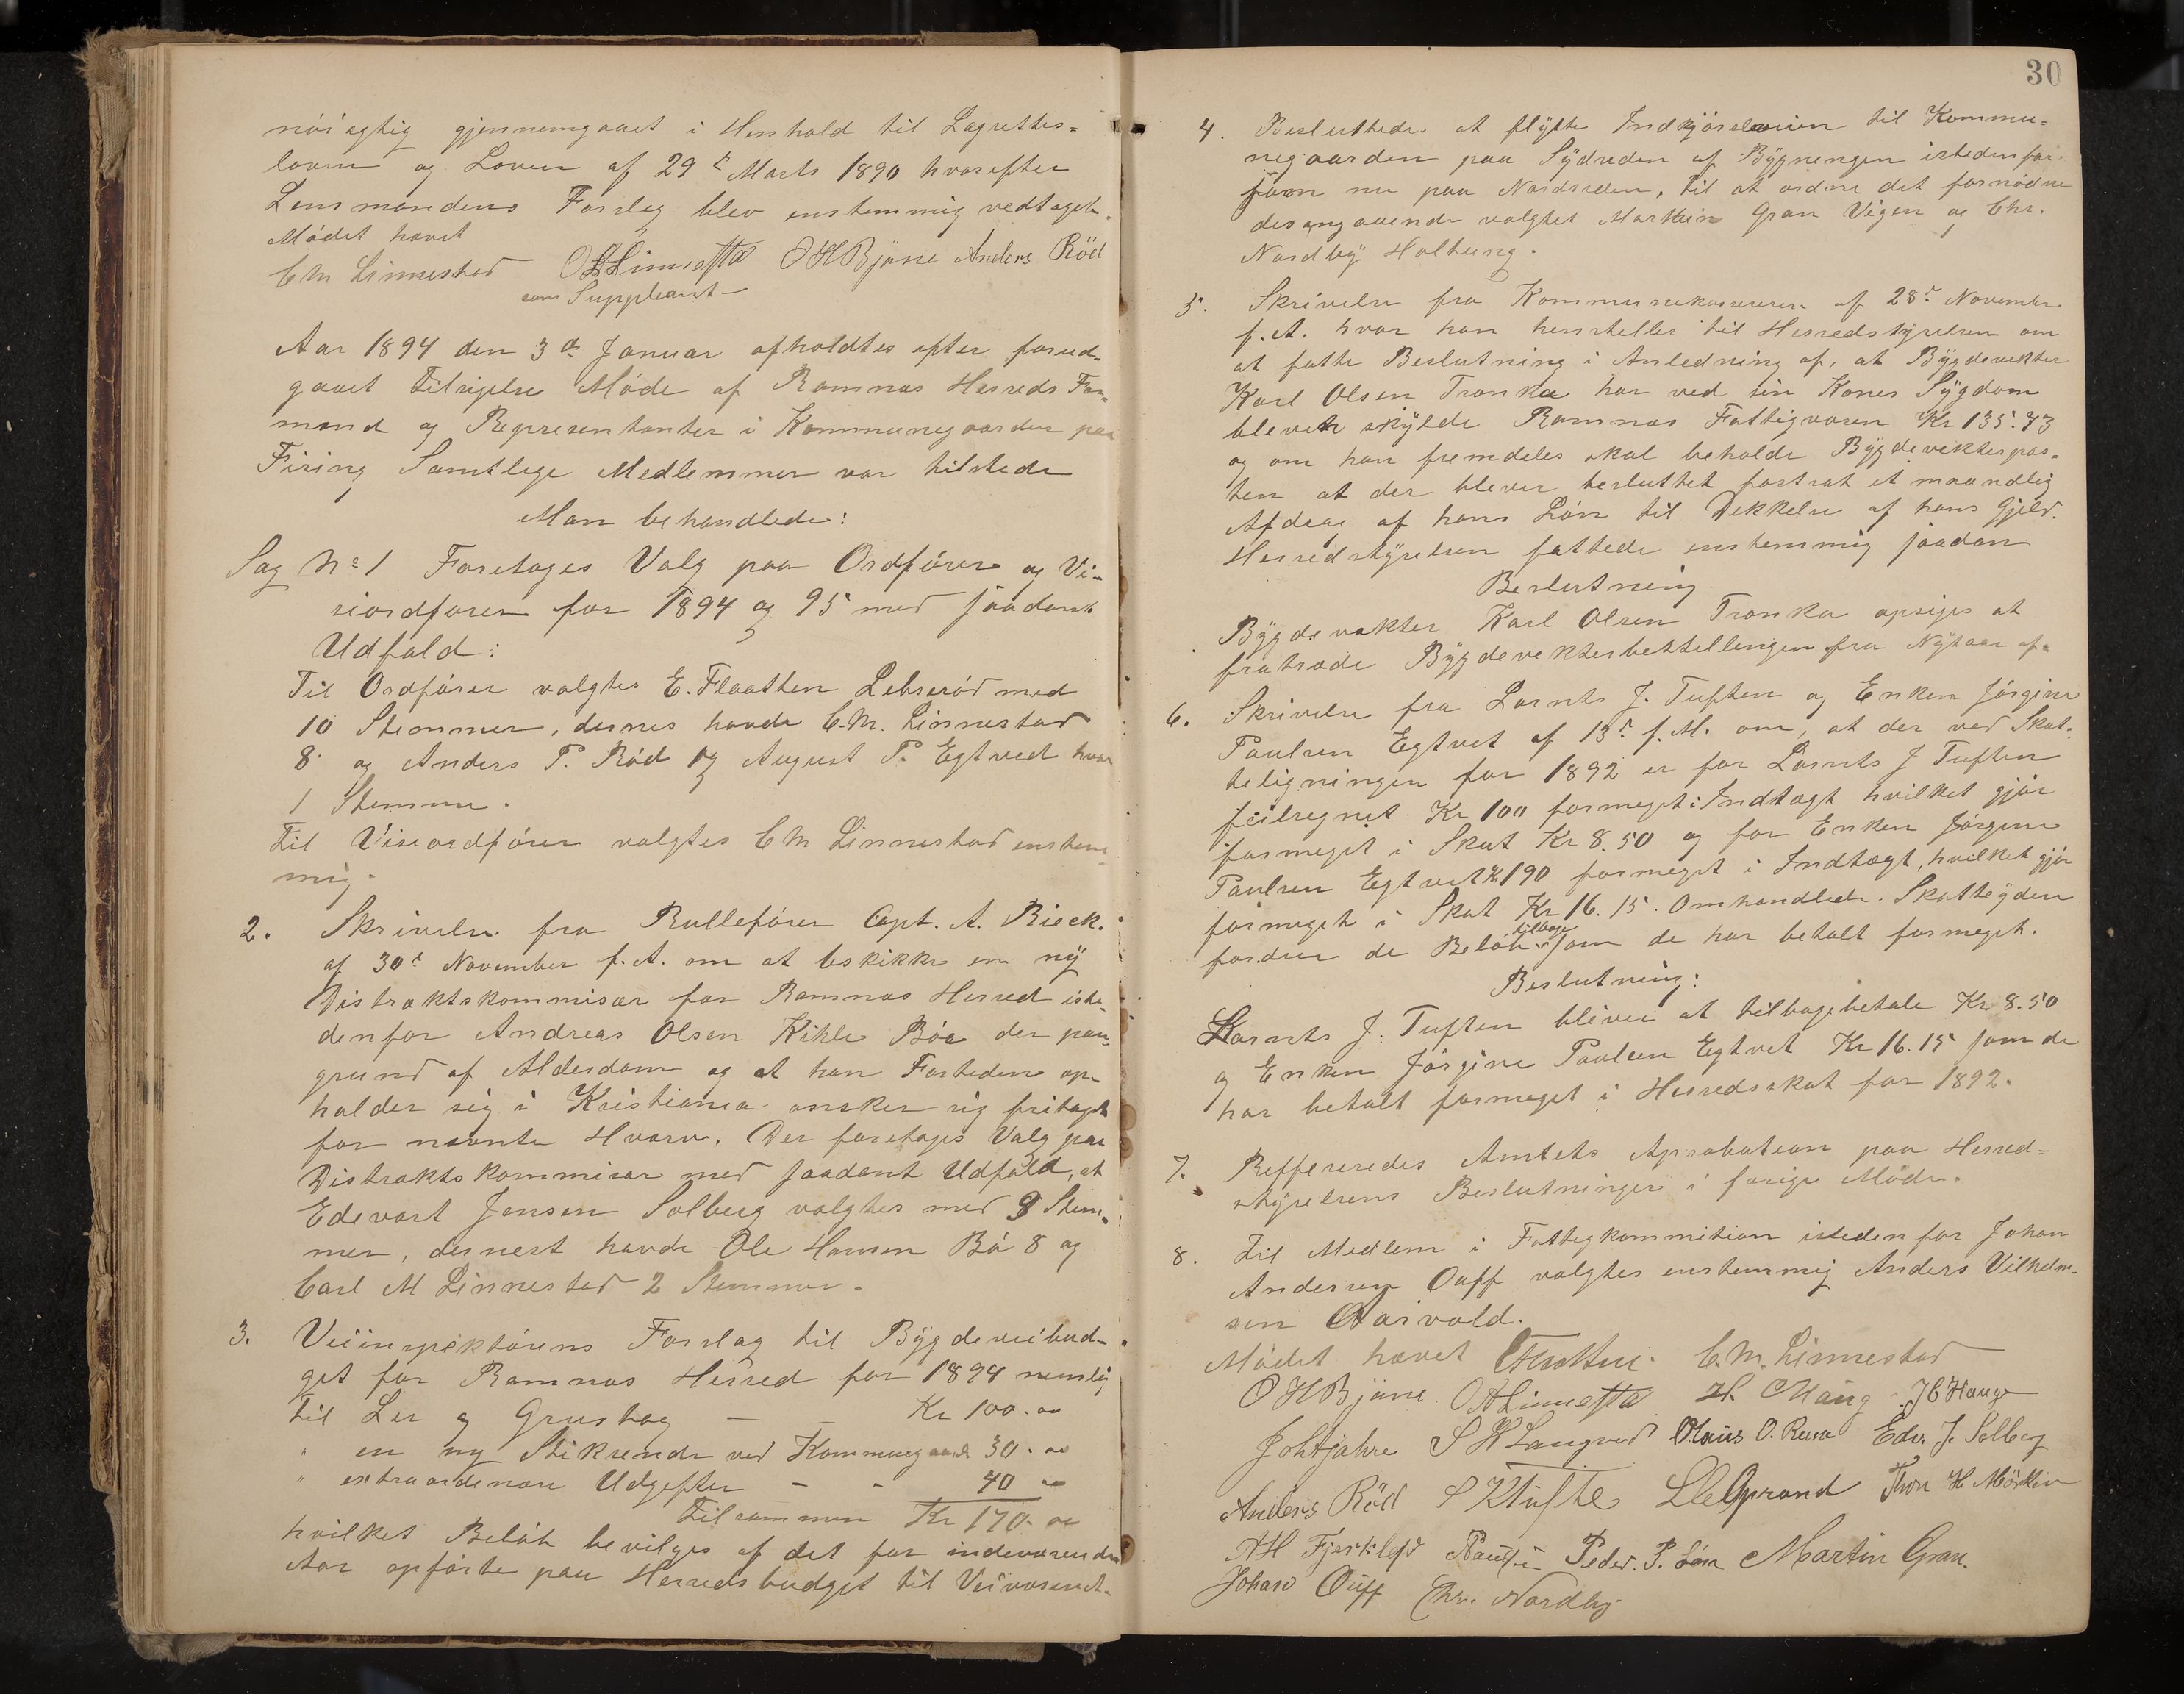 nöiagtig gjennemgaaet i Henhold til Lagrettes=
loven og Loven af 29de Marts 1890 hvorefter
Lensmandens Forslag blev enstemmig vedtaget.
Mödet hævet
C M Linnestad O H Linnestad O H Bjöne Anders Röd
som Suppleant
Aar 1894 den 3de Januar afholdtes efter forud-
gaaet Tilsigelse Möde af Ramnas Herreds For-
mænd og Representanter i Kommunegaarden paa
Firing Samtlige Medlemmer var tilstede
Man behandlede:
Sag No 1 Foretages Valg paa Ordförer og Vi-
siordförer for 1894 og 95 med saadant
Udfald:
Til Ordförer valgtes E. Flaatten Lebseröd med
10 Stemmer, dernes havde C. M. Linnestad
8 og Anders P. Röd og August P. Egtved hvær
1 Stemme.
Til Viseordförer valgtes C M Linnestad enstem-
mig.
2. Skrivelse fra Rulleförer Capt. A. Rieck.
af 30te November f. A. om at beskikke en ny
Distraktskommisær for Ramnas Herred iste-
denfor Andreas Olsen Kihle Böe der paa-
grund af Alderdom og at han Fortiden op-
holder sig i Kristiania ønsker sig fritaget
for nævnte Hverv. Der foretages Valg paa
Distraktskommisær med saadant Udfald, at
Edevart Jensen Solberg valgtes med 9 Stem-
mer, dernest havde Ole Hansen Bö 8 og
Carl M Linnestad 2 Stemmer.
3. Veiinspektörens Forslag til Bygdeveibud-
get for Ramnas Herred for 1894 nemlig
til Ler og Grustag — — Kr 100.00
" en ny Stikrende ved Kommunegaard 30.00
" extraordenære Udgifter - - 40 00
Tilsammen Kr 170.00
hvilket Belöb bevilges af det for indeværende
Aar opförte paa Herredsbudget til Veivæsenet.
30
4. Besluttedes at flytte Indkjörselsveien til Kommu=
negaarden paa Sydsiden af Bygningen istedenfor
som nu paa Nordsiden, til at ordne det fornödne
desangaaende valgtes Martin Gran Vigen og Chr.
Nordby Holtung.
5. Skrivelse fra Kommunekassereren af 28de November
f. A. hvor han henstiller til Herredstyrelsen om
at fatte Beslutning i Anledning af, at Bygdevekter
Karl Olsen Tronka har ved sin Kones Sygdom
bleven skyldt Ramnas Fattigvæsen Kr 135.73
og om han fremdeles skal beholde Bygdevekterpos-
ten at der bliver besluttet fastsat et maandlig
Afdrag af hans Lön til Dekkelse af hans Gjeld.
Herredstyrelsen fattede enstemmig saadan
Beslutning
Bygdevekter Karl Olsen Tronka opsiges at
fratræde Bygdevekterbestillingen fra Nytaar af.
6. Skrivelse fra Lornts J. Tuften og Enken Jörgine
Paulsen Egtvet af 13de f. M. om, at der ved Skat-
teligningen for 1892 er for Lornts J Tuften
feilregnet Kr 100 formeget i Indtægt hvilket gjör
formeget i Skat Kr 8.50 og for Enken Jörgine
Paulsen Egtvet Kr 190 formeget i Indtægt, hvilket gjör
formeget i Skat Kr 16.15. Omhandlede Skatteydere
fordrer de Belöb tilbage som de har betalt formeget.
Beslutning:
Lornts J. Tuften bliver at tilbagebetale Kr 8.50
og Enken Jörgine Paulsen Egtvet Kr 16.15 som de
har betalt formeget i Herredsskat for 1892.
7. Reffereredes Amtets Aprobation paa Herred-
styrelsens Beslutninger i forige Möde.
8. Til Medlem i Fattigkommition istedenfor Johan
Andersen Ouff valgtes enstemmig Anders Vilhelm-
sen Aarvold.
Mödet hævet EFlaatten. C. M. Linnestad
O H Bjöne O H Linnestad H. C Haug J C Hauge
Joh Fjahre S H Langved Olaus O. Reua Edv. J. Solberg
Anders Röd S K Tufte Thor H Mörken
A H Fjertelsd Paulsen Peder. P. Lön Martin Gran.
Johan Ouff Chr. Nordby